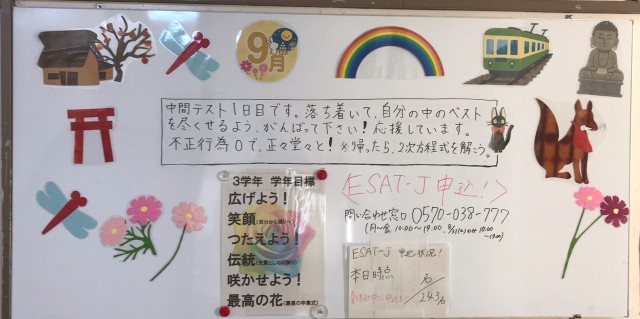 9月
中間テスト1日目です。落ち着いて、自分の中のベスト
を尽くせるよう、がんばって下さい！応援しています。
不正行為0で、正々堂々と！※帰ったら、2次方程式を解こう。
3学年 学年目標
広げよう！
笑顔
つたえよう！
伝統
咲かせよう！
最高の花(最高の卒業式)
〈ESAT-J 申込！〉
問い合わせ窓口 0570-038-777
(月～金 10:00～19:00
ESAT-J 申込状況！
本日時点
名
243名